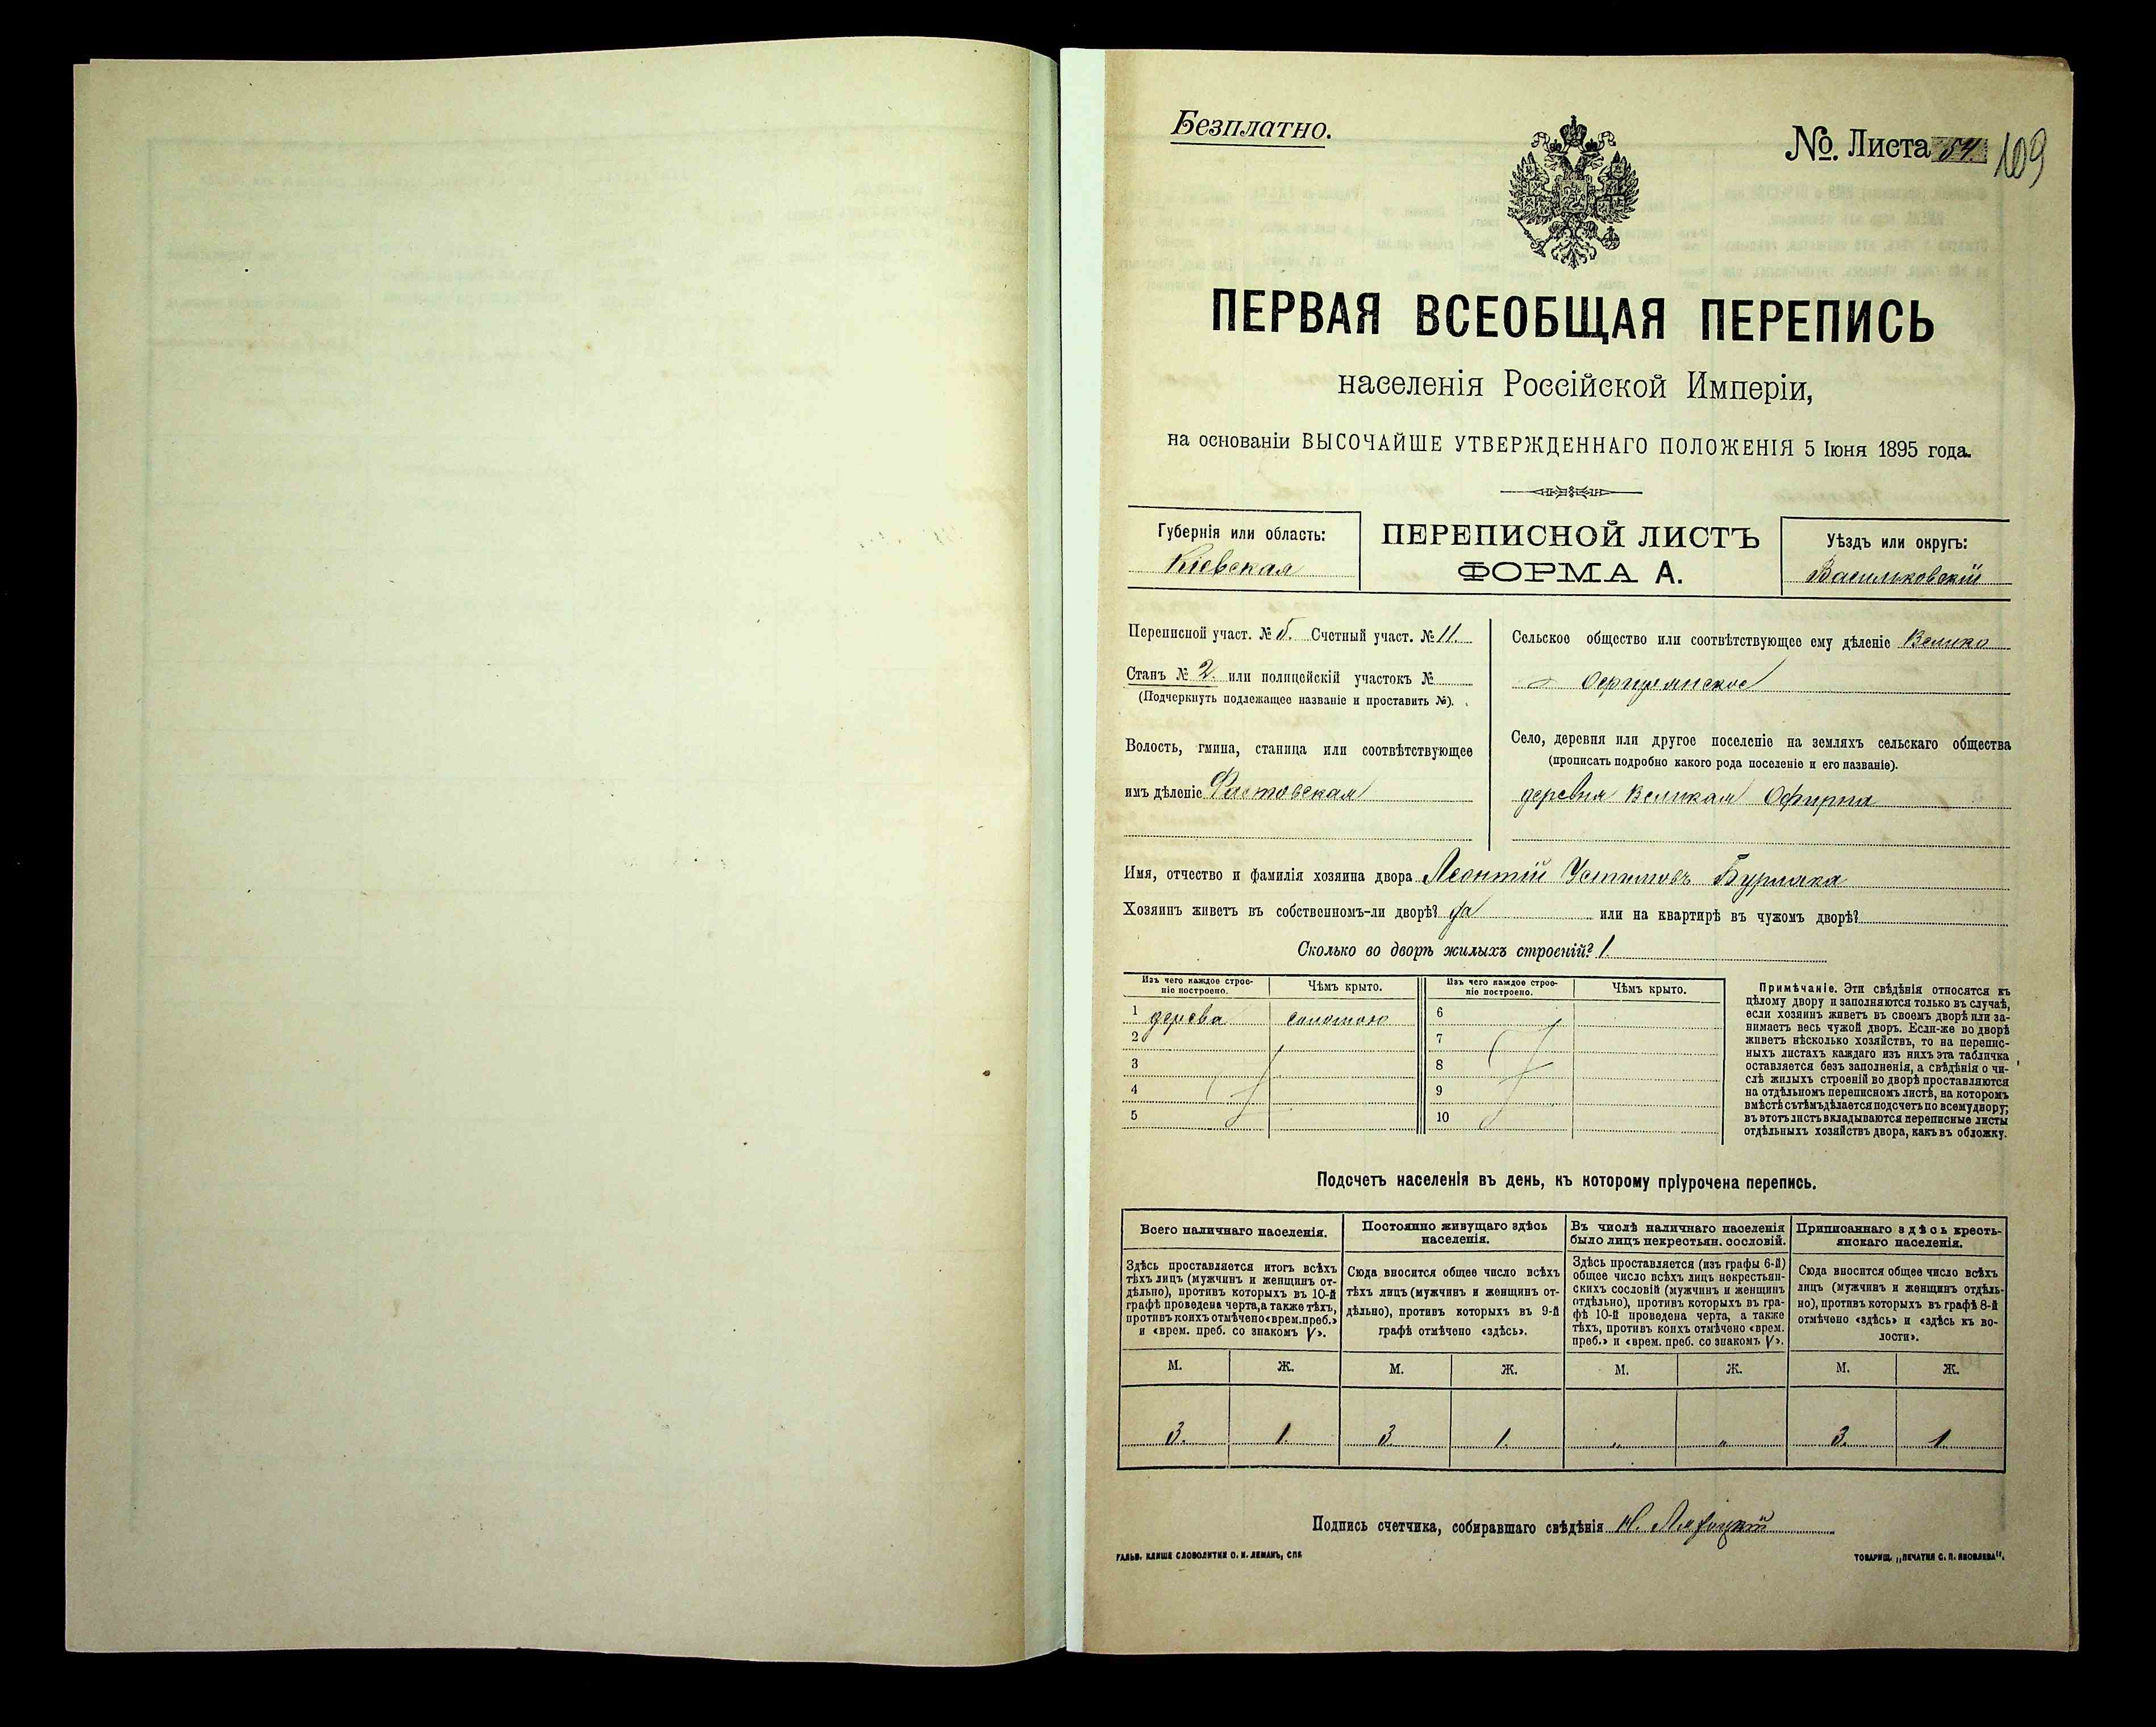 Безплатно.
№. Листа 54. 109
ПЕРВАЯ ВСЕОБЩАЯ ПЕРЕПИСЬ
населенія Россійской Имперіи,
на основаніи ВЫСОЧАЙШЕ УТВЕРЖДЕННАГО ПОЛОЖЕНІЯ 5 Іюня 1895 года.
Губернія или область:
Кіевская
ПЕРЕПИСНОЙ ЛИСТЪ
ФОРМА А.
Уѣздъ или округъ:
Васильковскій
Переписной участ. № 5. Счетный участ. № 11.
Станъ № 2. или полицейскій участокъ №
(Подчеркнуть подлежащее названіе и проставить №).
Волость, гмина, станица или соотвѣтствующее
имъ дѣленіе Фастовская
Сельское общество или соотвѣтствующее ему дѣленіе Велико
Село, деревня или другое поселеніе на земляхъ сельскаго общества
(прописать подробно какого рода поселеніе и его названіе).
деревня Великая Офирна
Имя, отчество и фамилія хозяина двора Леонтій Устимовъ Бурлака
Хозяинъ живетъ въ собственномъ-ли дворѣ? да или на квартирѣ въ чужомъ дворѣ?
Сколько во дворѣ жилыхъ строеній? 1.
Изъ чего каждое строе-
ніе построено.
Чѣмъ крыто.
1 дерева соломою
2
3
4
5
Изъ чего каждое строе-
ніе построено.
Чѣмъ крыто.
6
7
8
9
10
Примѣчаніе. Эти свѣдѣнія относятся къ
цѣлому двору и заполняются только въ случаѣ,
если хозяинъ живетъ въ своемъ дворѣ или за-
нимаетъ весь чужой дворъ. Если-же во дворѣ
живетъ нѣсколько хозяйствъ, то на перепис-
ныхъ листахъ каждаго изъ нихъ эта табличка
оставляется безъ заполненія, а свѣдѣнія о чи-
слѣ жилыхъ строеній во дворѣ проставляются
на отдѣльномъ переписномъ листѣ, на которомъ
вмѣстѣ съ тѣмъ дѣлается подсчетъ по всему двору;
въ этотъ листъ вкладываются переписные листы
отдѣльныхъ хозяйствъ двора, какъ въ обложку.
Подсчетъ населенія въ день, къ которому пріурочена перепись.
Всего наличнаго населенія.
Здѣсь проставляется итогъ всѣхъ
тѣхъ лицъ (мужчинъ и женщинъ от-
дѣльно), противъ которыхъ въ 10-й
графѣ проведена черта, а также тѣхъ,
противъ коихъ отмѣчено «врем. преб.»
и «врем. преб. со знакомъ V».
Постоянно живущаго здѣсь
населенія.
Сюда вносится общее число всѣхъ
тѣхъ лицъ (мужчинъ и женщинъ от-
дѣльно), противъ которыхъ въ 9-й
графѣ отмѣчено «здѣсь».
Въ числѣ наличнаго населенія
было лицъ некрестьян. сословій.
Здѣсь проставляется (изъ графы 6-й)
общее число всѣхъ лицъ некрестьян-
скихъ сословій (мужчинъ и женщинъ
отдѣльно), противъ которыхъ въ гра-
фѣ 10-й проведена черта, а также
тѣхъ, противъ коихъ отмѣчено «врем.
преб.» и «врем. преб. со знакомъ V».
Приписаннаго здѣсь кресть-
янскаго населенія.
Сюда вносится общее число всѣхъ
лицъ (мужчинъ и женщинъ отдѣль-
но), противъ которыхъ въ графѣ 8-й
отмѣчено «здѣсь» и «здѣсь къ во-
лости».
М. Ж. М. Ж. М. Ж. М. Ж.
3. 1. 3 1. „ „ 3. 1
Подпись счетчика, собиравшаго свѣдѣнія
ГАЛЬВ. КЛИШЕ СЛОВОЛИТНИ О. И. ЛЕМАНЪ, СПБ
ТОВАРИЩ. „ПЕЧАТНЯ С. П. ЯКОВЛЕВА".